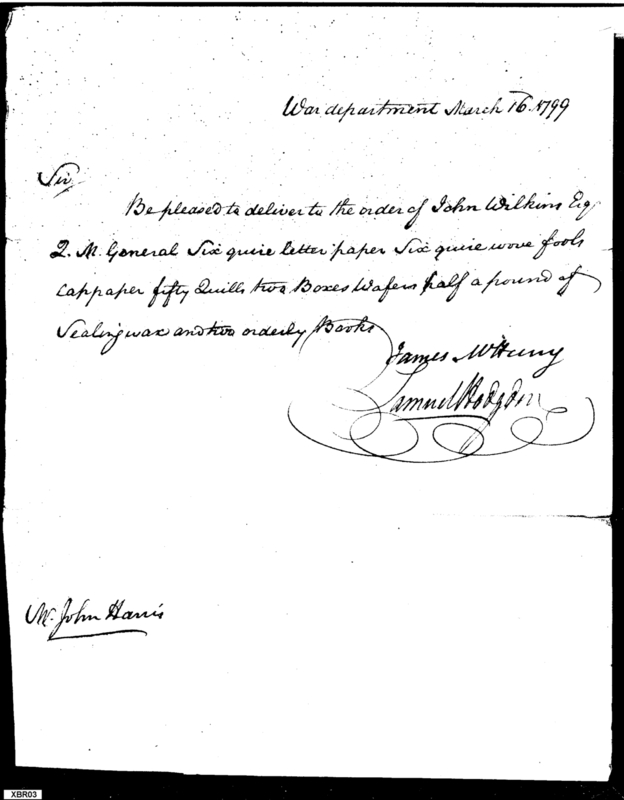 War department March 16. 1799
Sir
Be pleased to deliver to the order of John Wilkins Esq
Q. M. General Six quire letter paper Six quire wove fools
cap paper fifty Quills two Boxes Wafers half a pound of
Sealing wax and two orderly Books
James McHenry
Samuel Hodgdon
Mr. John Harris
XBR03